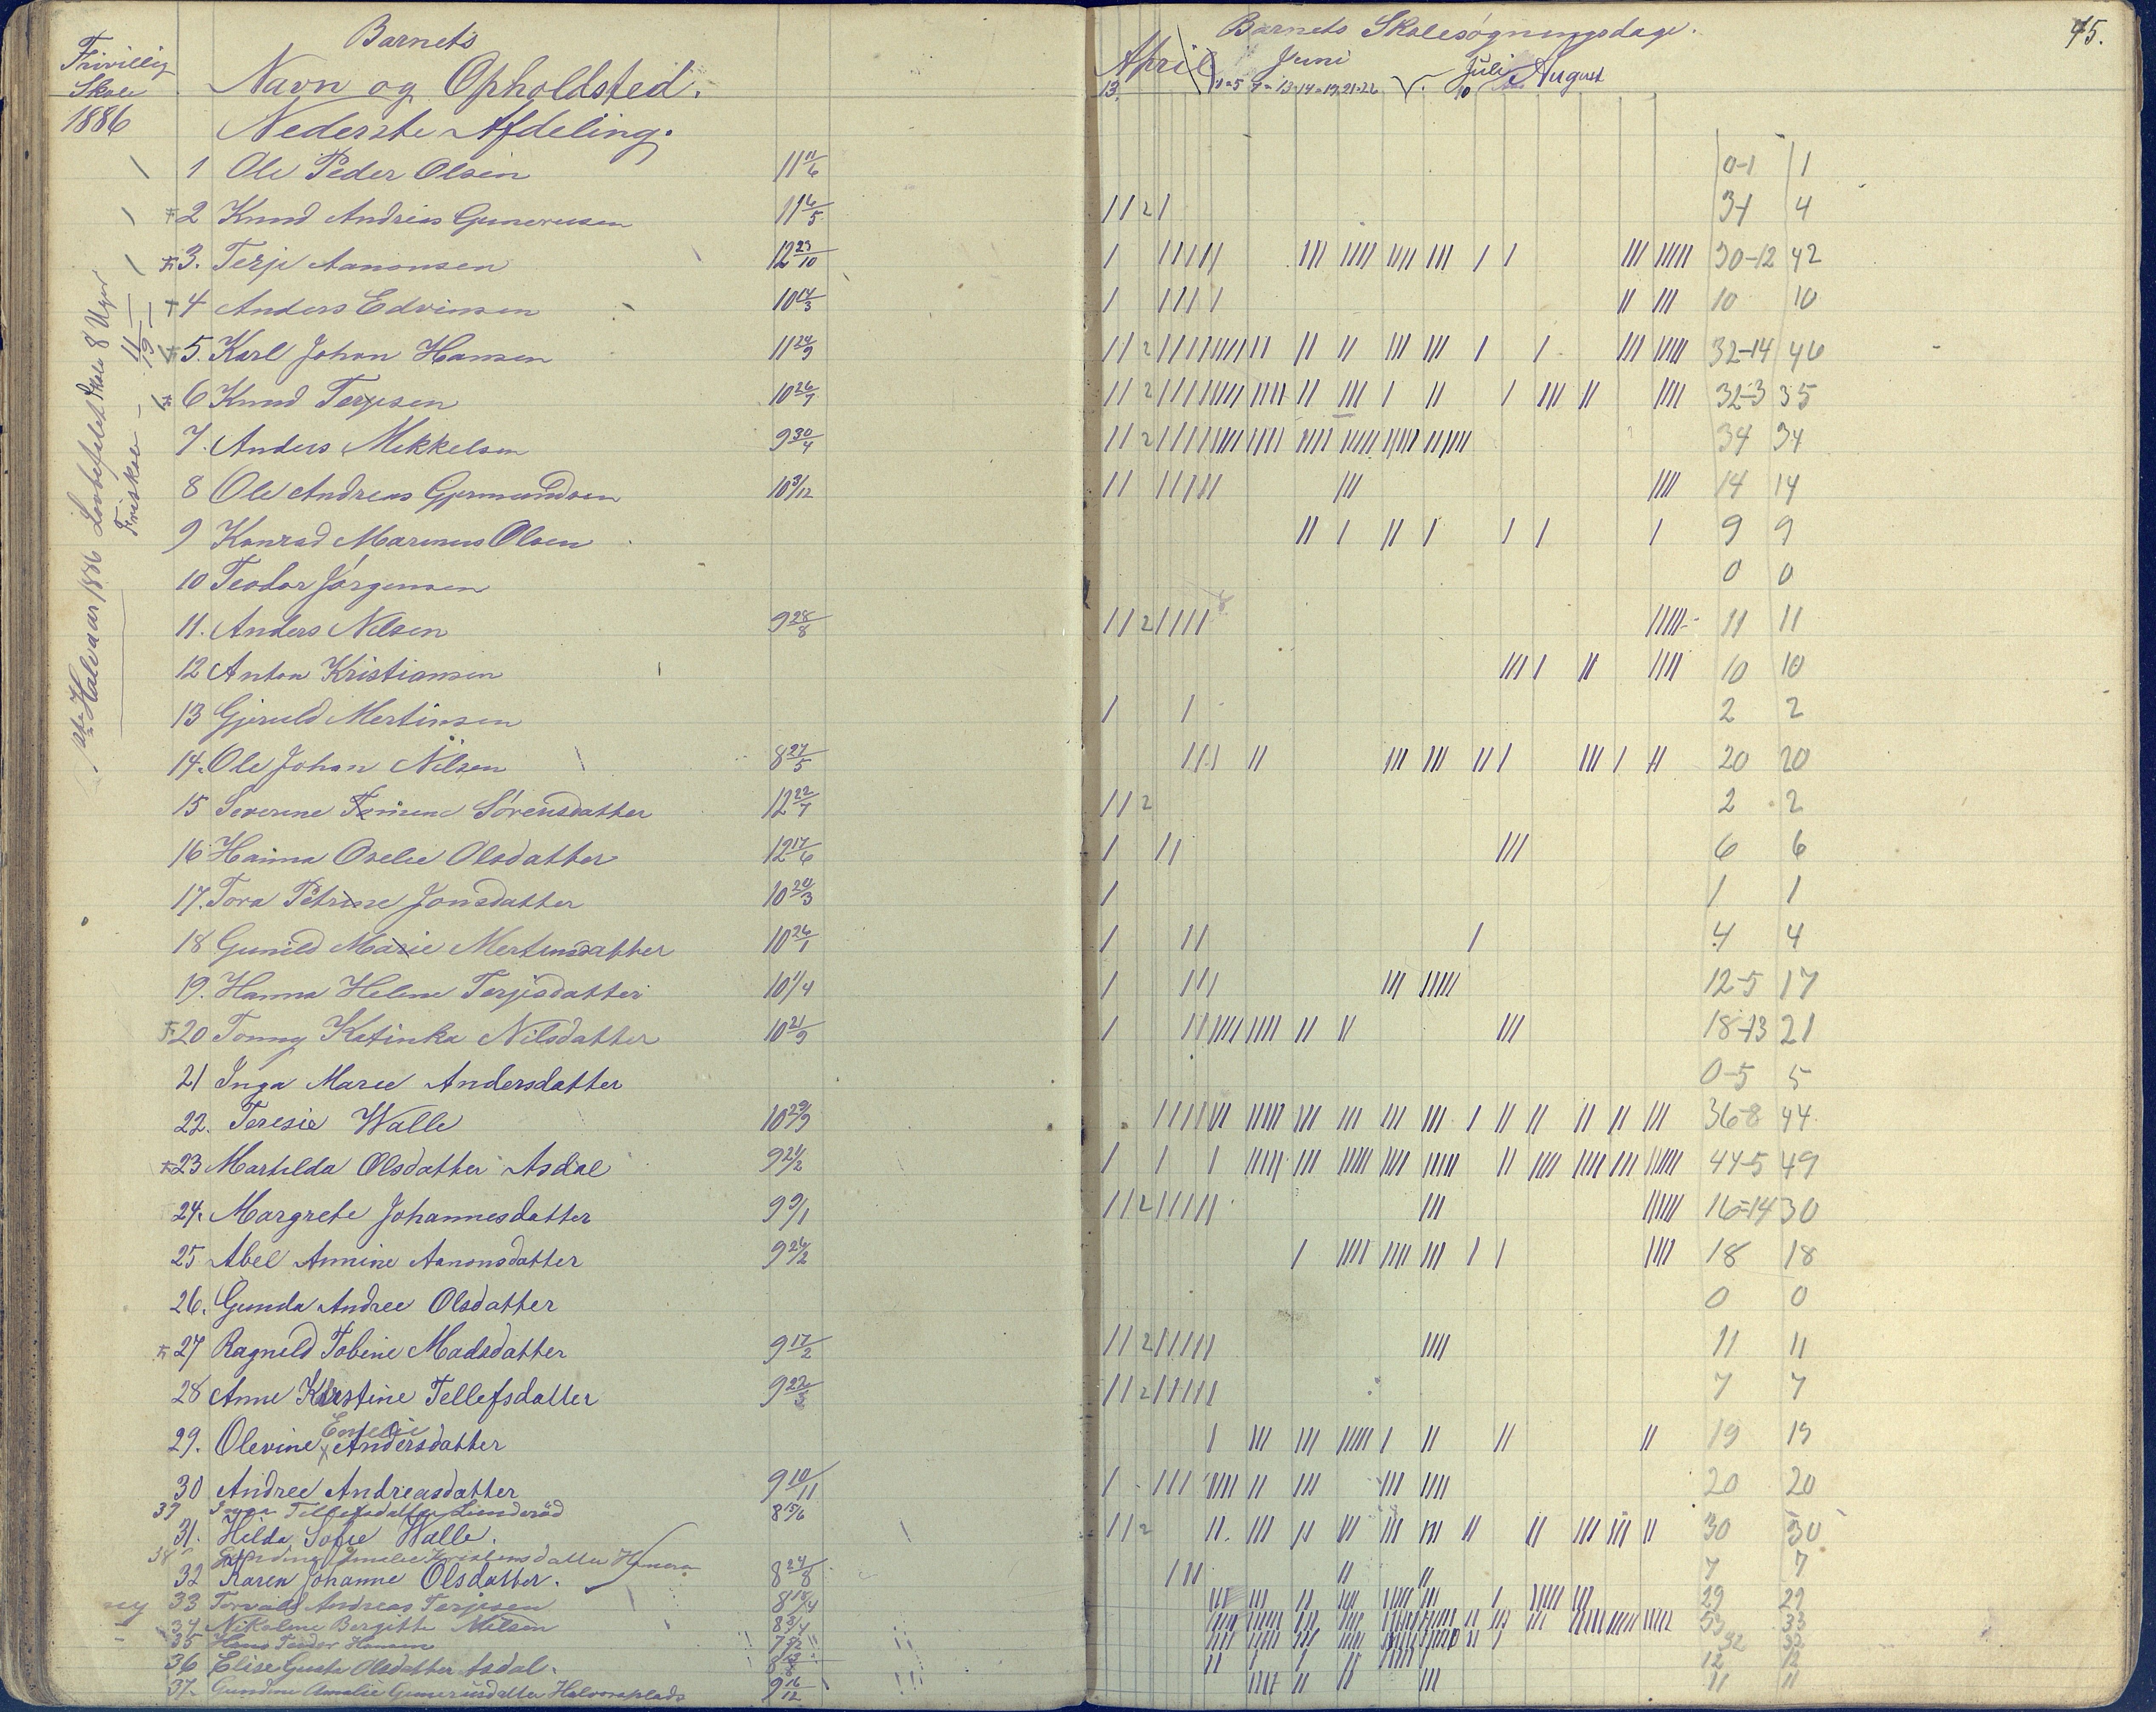 Frivillig
Skole
1886
Barnets
Navn og Opholdsted.
Nederste Afdeling.
Barnets Skolesøgningsdage.
45.
April Juni Juli August
13. 10
1ste Halvaar 1886 Lovbefalet Skole 8 Uger
Friskole
1 Ole Peder Olsen 11 11/6 0-1 1
2 Knud Andreas Gunerusen 11 6/5 2 3-1 4
3. Terje Aanonsen 12 23/10 30-12 42
4 Anders Edvinsen 10 14/3 10 10
5. Karl Johan Hansen 11 24/9 2 32-14 46
6 Knud Terjesen 10 26/9 2 32-3 35
7. Anders Mikkelsen 9 30/4 2 34 34
8 Ole Andreas Gjermundsen 10 3/12 14 14
9 Konrad Marinus Olsen 9 9
10 Teodor Jørgensen 0 0
11. Anders Nilsen 9 28/8 2 11 11
12 Anton Kristiansen 10 10
13 Gjeruld Mertinsen 2 2
14. Ole Johan Nilsen 8 27/5 20 20
15 Severine Sørensdatter 12 22/7 2 2 2
16 Hanna Oselie Olsdatter 12 17/6 6 6
17. Tora Petrine Jonsdatter 10 20/3 1 1
18 Gunild Marie Mertinsdatter 10 26/1 4 4
19. Hanna Helene Terjesdatter 10 1/4 12-5 17
20 Tonny Katinka Nilsdatter 10 21/9 18-13 21
21 Inga Marie Andersdatter 0-5 5
22. Teresie Walle 10 29/9 36-8 44
23 Martilda Olsdatter Asdal 9 21/2 44-5 49
24. Margrete Johannesdatter 9 9/1 2 16-14 30
25 Abel Annine Aanonsdatter 9 26/2 18 18
26. Gunda Andree Olsdatter 0 0
27 Ragnild Tobine Madsdatter 9 17/2 2 11 11
28 Anne Kirstine Tellefsdatter 9 22/3 2 7 7
Emelie
29. Olevine Andersdatter 19 19
30 Andree Andreasdatter 9 10/11 20 20
37 Inga Tellefsdatter Lunderød 8 15/6
31. Hilda Sofie Walle. 2 30 30
38 Amalie Kristensdatter
32 Karen Johanne Olsdatter. 8 24/8 7 7
ny 33 Torvald Andreas Terjesen 8 18/4 29 29
34 Nikoline Bergitte Nilsen 8 3/4 53 33
35 Hans Teodor Hansen 32
36 Elise Gusta Olsdatter Asdal. 12 12
37. Gundine Amalie Gunerusdatter Halvorsplads 9 16/12 11 11